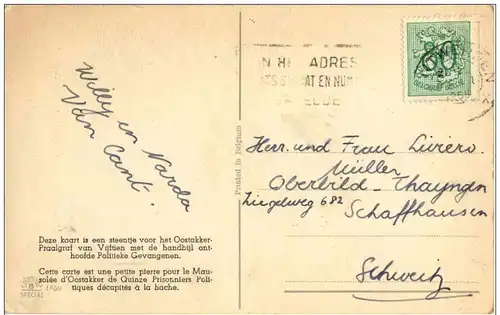 Willy en Narda
Van Cant.
Deze kaart is een steentje voor het Oostakker-
Praalgraf van Vijftien met de handbijl ont-
hoofde Politieke Gevangenen.
Cette carte est une petite pierre pour le Mau-
solée d'Oostakker de Quinze Prisonniers Poli-
tiques décapités à la hache.
SPECIAL
Printed in Belgium
N HE ADRES
AT EN NUM
60
Herr. und Frau Livero.
Müller
Oberbild - Thayngen
Ziegelweg 682
Schaffhausen
Schweitz